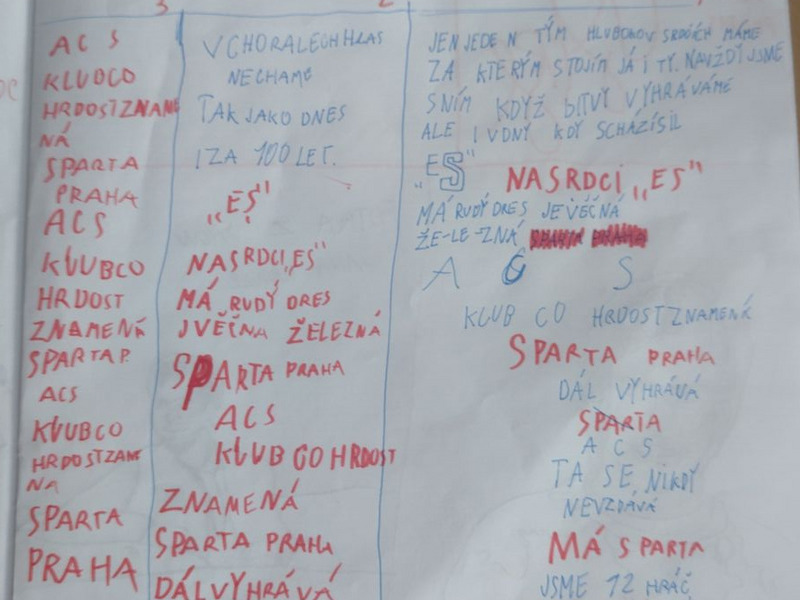 3
ACS
KLUBCO
HRDOSTZNAME
NÁ
SPARTA
PRAHA
ACS
KLUBCO
HRDOST
ZNAMENÁ
SPARTA P.
ACS
KLUBCO
HRDOSTZAME
NA
SPARTA
PRAHA
2
VCHORALECH HLAS
NECHAME
TAK JAKO DNES
I ZA 100 LET.
„ES"
NASRDCI„ES"
MÁ RUDÝ DRES
JVĚČNA ŽELEZNÁ
SPARTA PRAHA
ACS
KLUB CO HRDOST
ZNAMENÁ
SPARTA PRAHA
DÁLVYHRÁVÁ
JEN JEDEN TÝM HLUBOKOV SRDCÍCH MÁME
ZA KTERÝM STOJÍM JÁ I TY. NAVŽDY JSME
SNÍM KDYŽ BITVY VYHRÁVÁME
ALE I VDNY KDY SCHÁZÍ SIL
„ES"
NASRDCI „ES"
MÁ RUDÝ DRES JEVĚČNÁ
ŽE-LE-ZNÁ
A C S
KLUB CO HRDOSTZNAMENÁ
SPARTA PRAHA
DÁL VYHRÁVÁ
SPARTA
ACS
TA SE NIKDY
NEVZDÁVÁ
MÁ SPARTA
JSME 12 HRÁČ